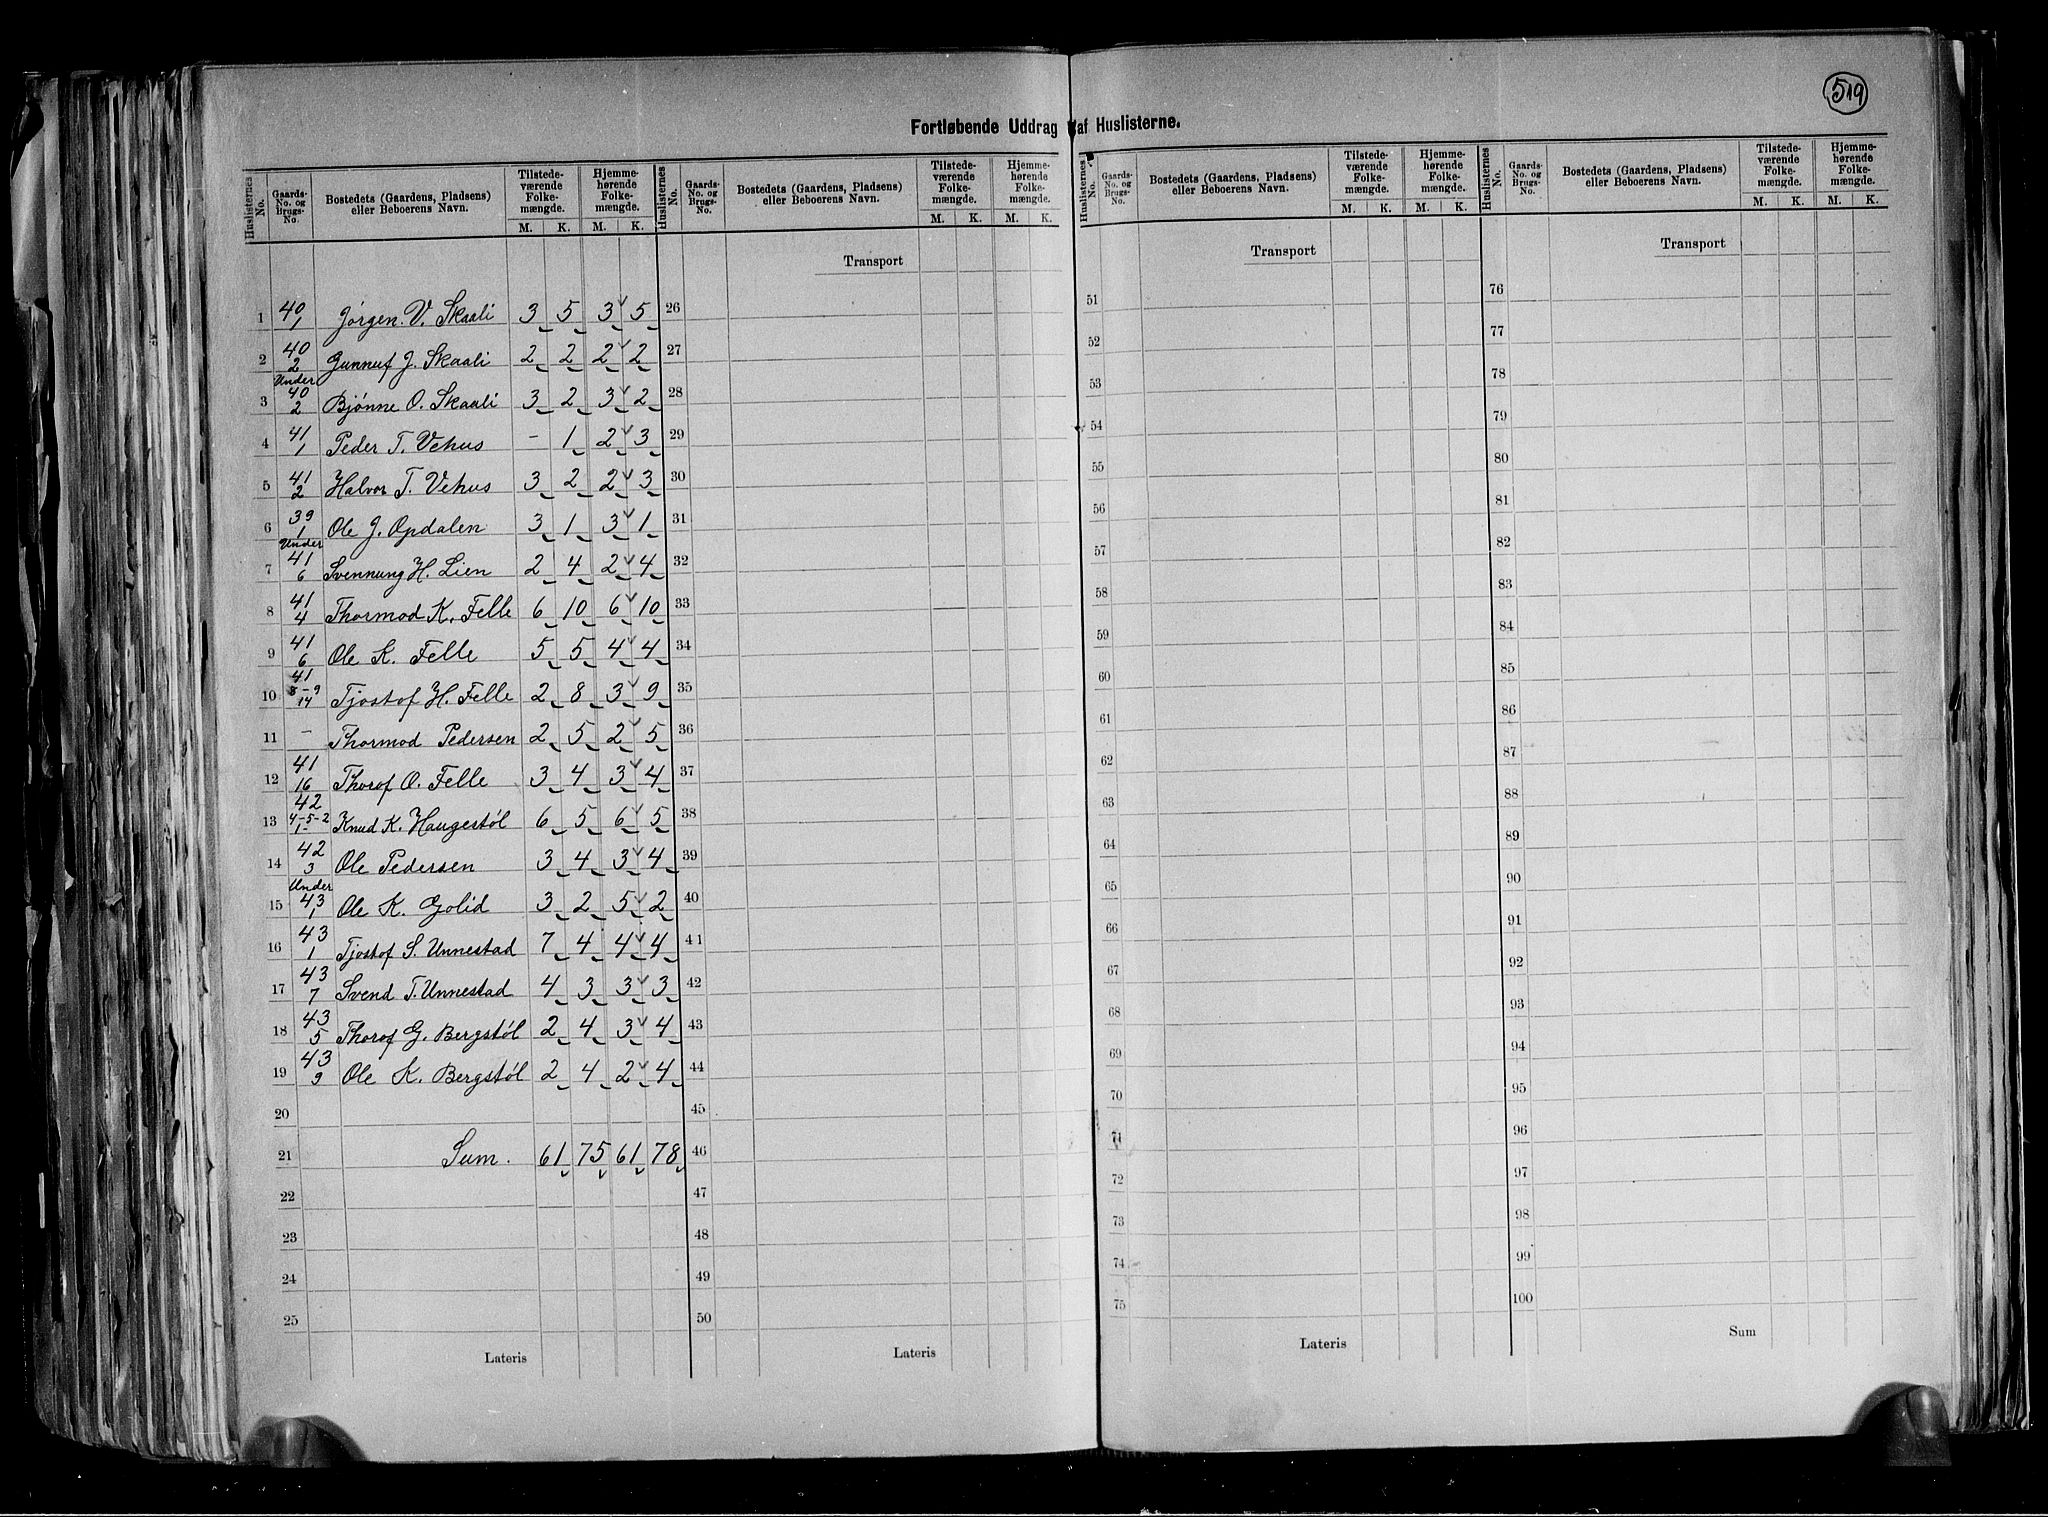 519
Fortløbende Uddrag af Huslisterne.
Huslisternes No. | Gaards-No. og Brugs-No. | Bostedets (Gaardens, Pladsens) eller Beboerens Navn. | Tilstedeværende Folkemængde. M. K. | Hjemmehørende Folkemængde. M. K.
Huslisternes No. | Gaards-No. og Brugs-No. | Bostedets (Gaardens, Pladsens) eller Beboerens Navn. | Tilstedeværende Folkemængde. M. K. | Hjemmehørende Folkemængde. M. K.
Huslisternes No. | Gaards-No. og Brugs-No. | Bostedets (Gaardens, Pladsens) eller Beboerens Navn. | Tilstedeværende Folkemængde. M. K. | Hjemmehørende Folkemængde. M. K.
Huslisternes No. | Gaards-No. og Brugs-No. | Bostedets (Gaardens, Pladsens) eller Beboerens Navn. | Tilstedeværende Folkemængde. M. K. | Hjemmehørende Folkemængde. M. K.
Transport Transport Transport
1 40/1 Jørgen. V. Skaali 3 5 3 5 26 51 76
2 40/2 Gunnuf J. Skaali 2 2 2 2 27 52 77
3 Under 40/2 Bjønne O. Skaali 3 2 3 2 28 53 78
4 41/1 Peder T. Vehus - 1 2 3 29 54 79
5 41/2 Halvor T. Vehus 3 2 2 3 30 55 80
6 39/1 Ole J. Opdalen 3 1 3 1 31 56 81
7 Under 41/6 Svennung H. Lien 2 4 2 4 32 57 82
8 41/4 Thormod K. Felle 6 10 6 10 33 58 83
9 41/6 Ole K. Felle 5 5 4 4 34 59 84
10 41/8-9 14 Tjostof H. Felle 2 8 3 9 35 60 85
11 - Thormod Pedersen 2 5 2 5 36 61 86
12 41/16 Thorof O. Felle 3 4 3 4 37 62 87
13 42/4-5-2 1- Knud K. Haugestøl 6 5 6 5 38 63 88
14 42/3 Ole Pedersen 3 4 3 4 39 64 89
15 Under 43/1 Ole K. Golid 3 2 5 2 40 65 90
16 43/1 Tjostof S. Unnestad 7 4 4 4 41 66 91
17 43/7 Svend T. Unnestad 4 3 3 3 42 67 92
18 43/5 Thorof G. Bergstøl 2 4 3 4 43 68 93
19 43/9 Ole K. Bergstøl 2 4 2 4 44 69 94
20 45 70 95
21 Sum. 61 75 61 78 46 71 96
22 47 72 97
23 48 73 98
24 49 74 99
25 50 75 100
Lateris Lateris Lateris Sum